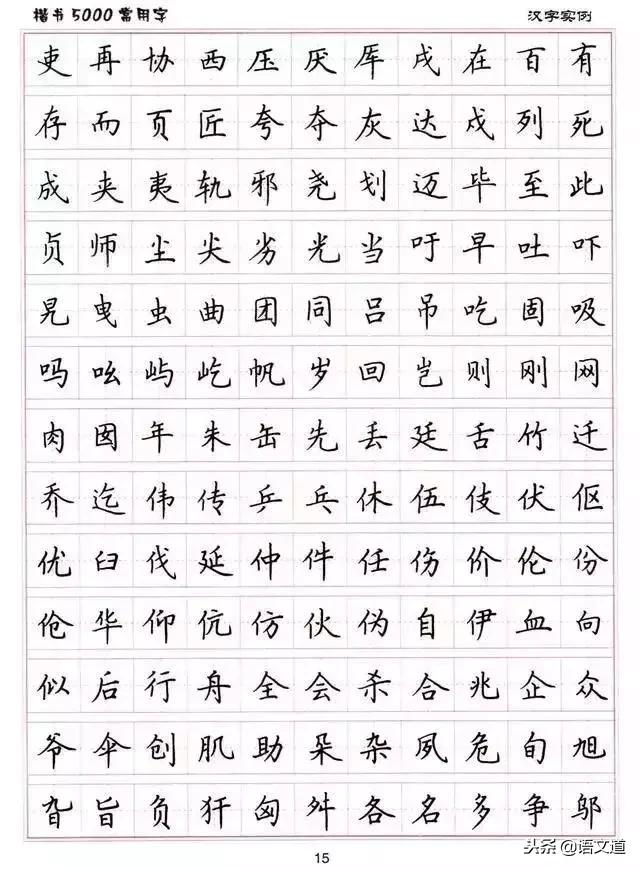 楷书5000常用字 汉字实例
吏再协西压厌厍戌在百有
存而页匠夸夺灰达戍列死
成夹夷轨邪尧划迈毕至此
贞师尘尖劣光当吁早吐吓
晃曳虫曲团同吕吊吃固吸
吗吆屿屹帆岁回岂则刚网
肉囡年朱缶先丢廷舌竹迁
乔迄伟传乒乓休伍伎伏伛
优臼伐延仲件任伤价伦份
伧华仰伉仿伙伪自伊血向
似后行舟全会杀合兆企众
爷伞创肌助朵杂夙危旬旭
旮旨负犴匈舛各名多争邬
15
头条@语文道